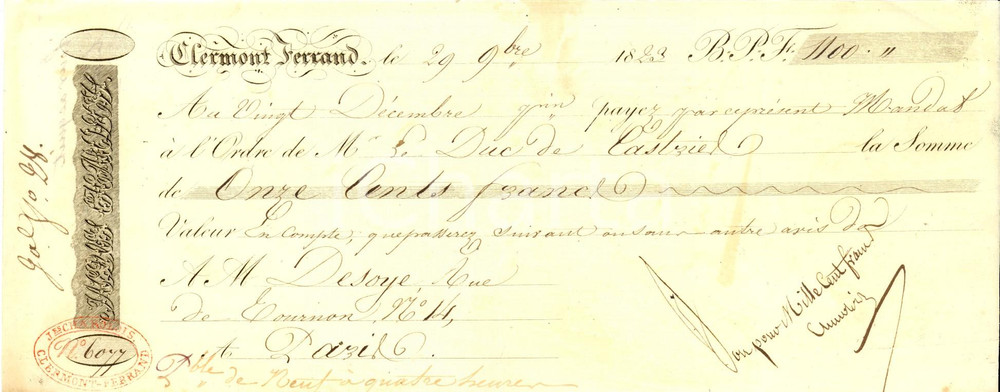 Clermont Ferrand, le 29 9bre 1823 B.P.F. 1100 "
Au Vingt Décembre pin payez par ce présent Mandat
à l'Ordre de Mr Le Duc de Castries la Somme
de Onze Cents francs
Valeur En Compte, que passerez suivant ou sans autre avis de
A M Desoye, Rue
de Tournon, No 14,
à Paris
Pble de Neuf à quatre heures
Bon pour Mille Cent francs
No 6077
CLERMONT-FERRAND